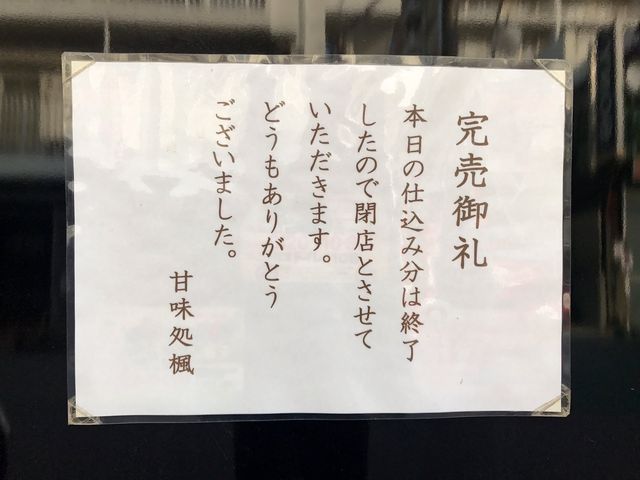 完売御礼
本日の仕込み分は終了
したので閉店とさせて
いただきます。
どうもありがとう
ございました。
甘味処楓